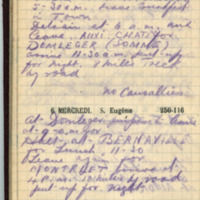 5.30 a.m. Breakfast
in Town
Detrain at 6 a.m. and
leave AUXI CHATEAU for
DOMLEGER (SOMME)
arrive 11.30 a.m. put up
for night. 8 miles
by road
no Causalties
6. MERCREDI. S. Eugène 250-116
At Domleger
at 9 a.m. for
halt at BERNAVILLE
for lunch 11.30
Leave again for
MONTRELET
by road
put up for night